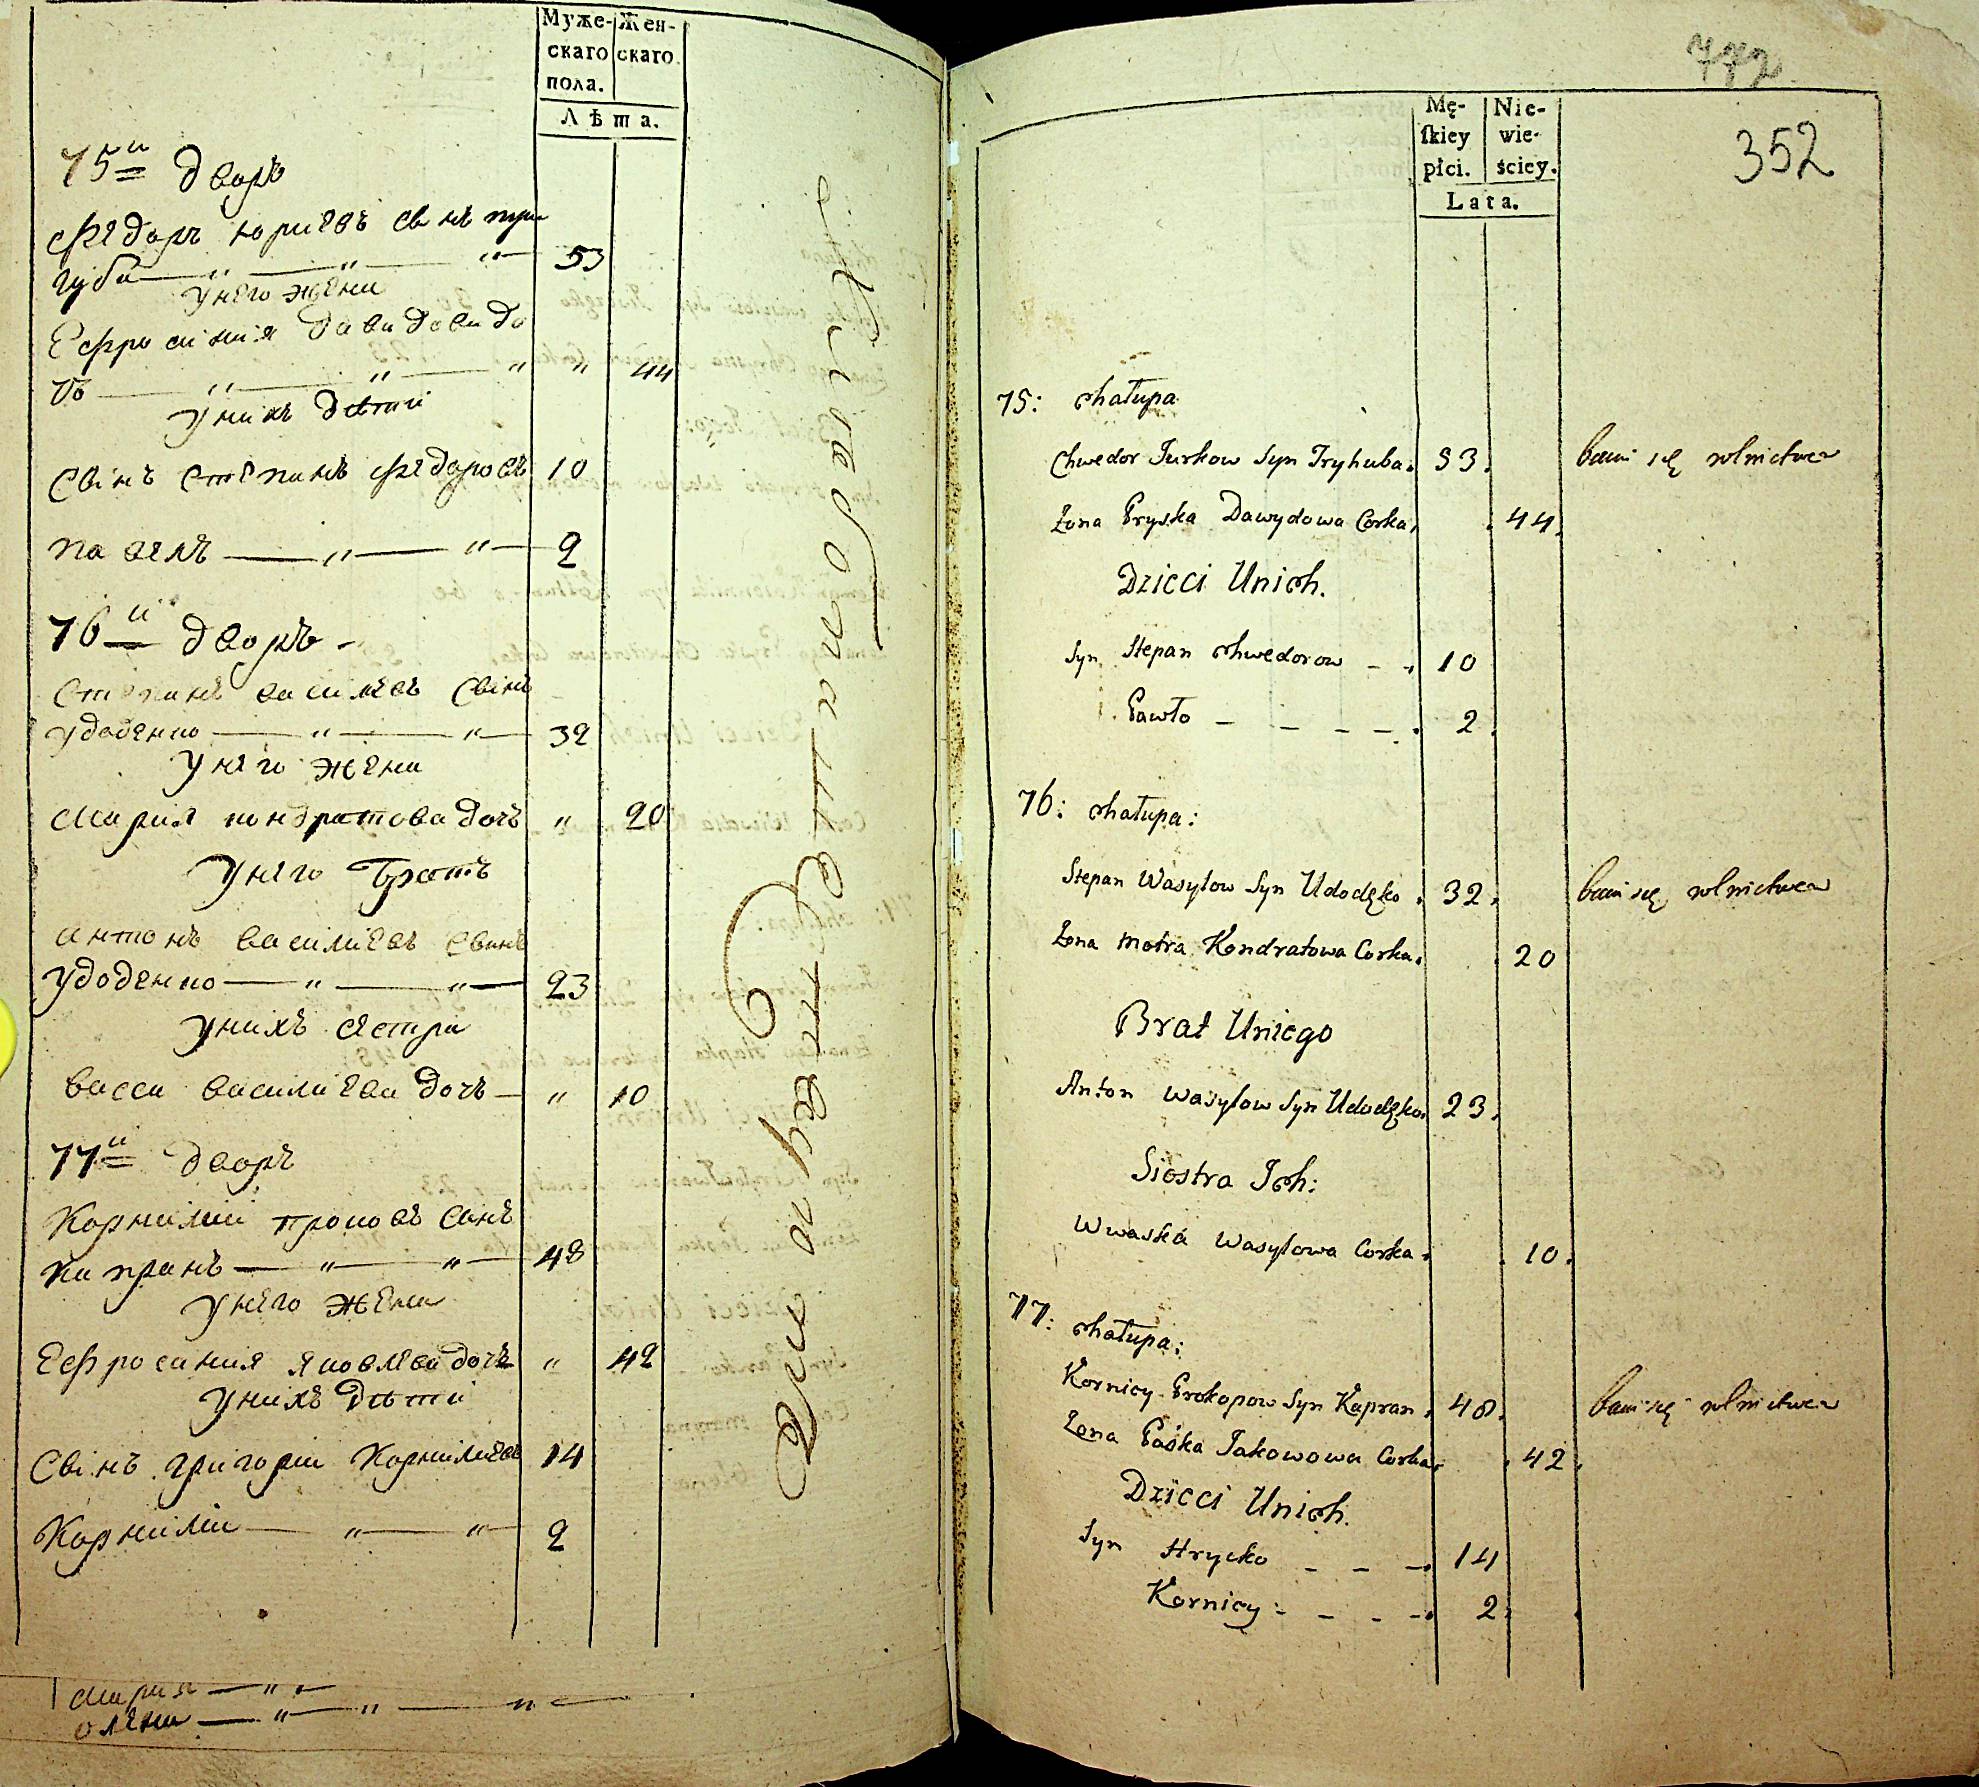 Муже- Жен-
скаго скаго
пола.
Лѣта.
75й дворъ
Федоръ юриевъ свнъ три
губа — " — " — " — 53
унего жена
Ефросиния давидова до
чь — " — " — " " 44
унихъ дѣти
Свінъ степанъ федоровъ 10
павелъ — " — " — 2
76й дворъ -
Степанъ василевъ Свінъ
удоденко — " — " — 32
унего жена
Мария кондратова дочъ " 20
унего братъ
антонъ василиевъ Свинъ
удоденко — " — " — 23
унихъ сестра
васса василиева дочъ — " 10
77й дворъ
Корнилий проковъ Синъ
капранъ — " — " — 48
унего жена
Ефросиния яковлева дочъ " 42
унихъ дѣти
Свінъ григорий Корнилиевъ 14
Корнилий — " — " — 2
Мария — " —
олена — " — " — " —
772
352
Mę- Nie-
ſkiey wie-
płci. ściey.
Lata.
75: Chałupa
Chwedor Jurkow Syn Tryhuba. 53. bawi się rolnictwem
Żona Pryska Dawydowa Corka. 44.
Dzieci Unich.
Syn Stepan Chwedorow - - 10
Pawło - - - - . 2.
76: Chałupa:
Stepan Wasylow Syn Udodęko . 32. bawi się rolnictwem
Żona Motra Kondratowa Corka. 20
Brat Uniego
Anton Wasylow Syn Udodęko. 23.
Siostra Ich:
Wwaska Wasylowa Corka. 10.
77: Chałupa:
Kornicy Prokopow Syn Kapran . 48. bawi się rolnictwem
Żona Paska Jakowowa Corka. 42.
Dzieci Unich.
Syn Hrycko - - - 14
Kornicy - - - - 2.